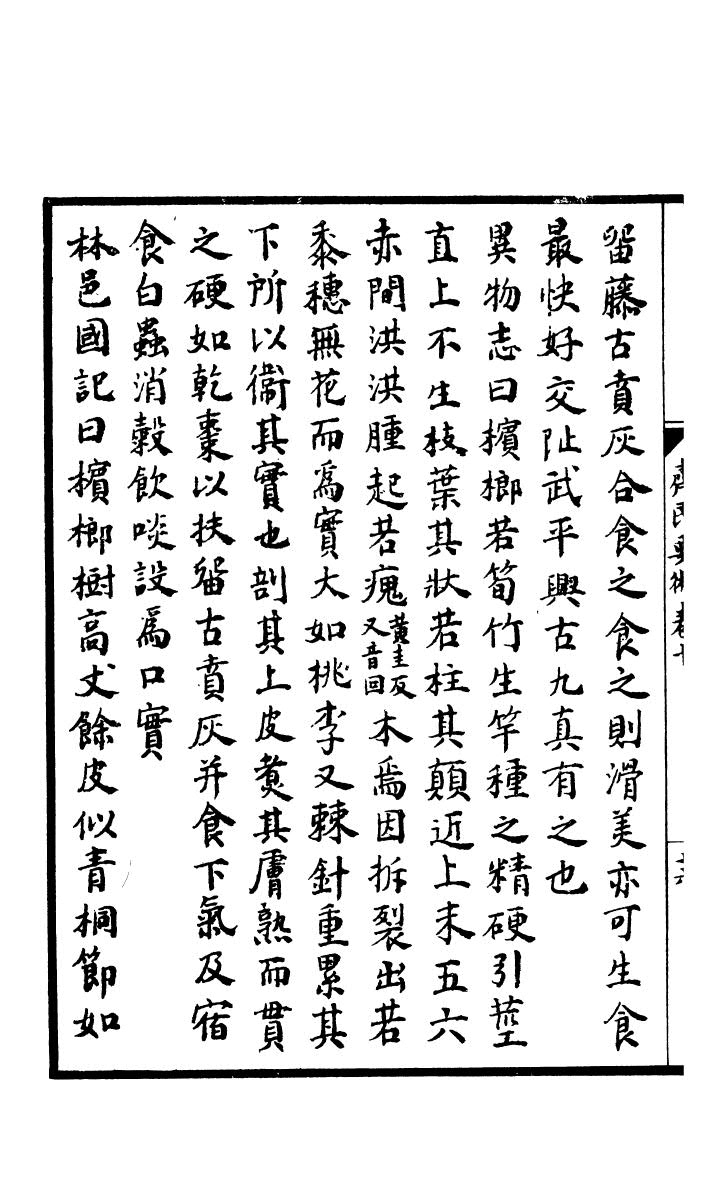 留藤古賁灰合食之食之則滑美亦可生食
最快好交阯武平興古九真有之也
異物志曰檳榔若筍竹生竿種之精硬引莖
直上不生枝葉其狀若柱其顛近上未五六
赤間洪洪腫起若瘣黃圭反又音回木焉因拆裂出若
黍穗無花而爲實大如桃李又棘針重累其
下所以衞其實也剖其上皮煑其膚熟而貫
之硬如乾棗以扶留古賁灰并食下氣及宿
食白蟲消穀飲啖設爲口實
林邑國記曰檳榔樹高丈餘皮似青桐節如
齊民要術卷十